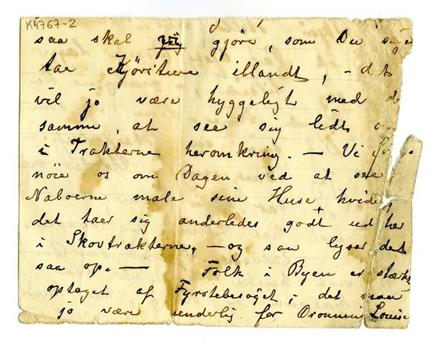 K4767-2
saa skal jeg gjøre, som Du sige
tae Kjøreture iblandt, - det
vil jo være hyggeligt med de
samme, at see sig lidt
i Trakterne heromkring. - Vi
nöie os om Dagen ved at see
Naboerne male sine Huse hvide
det taer sig anderledes godt ud her
i Skovtrakterne, - og saa lyser det
saa op. - Folk i Byen er stærkt
optaget af Fyrstebesöget; det maa
jo være underlig for Dronning Louise